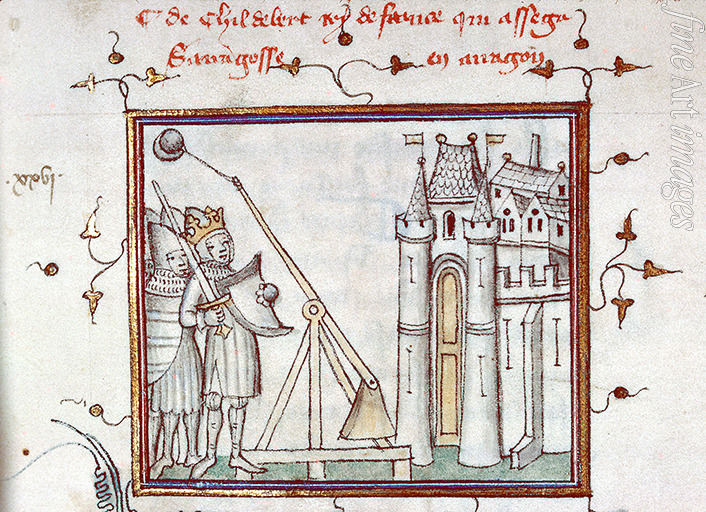 C de Childebert roy de france qui assege
Sarragosse en arragon
.xxxvi.
fine Art images